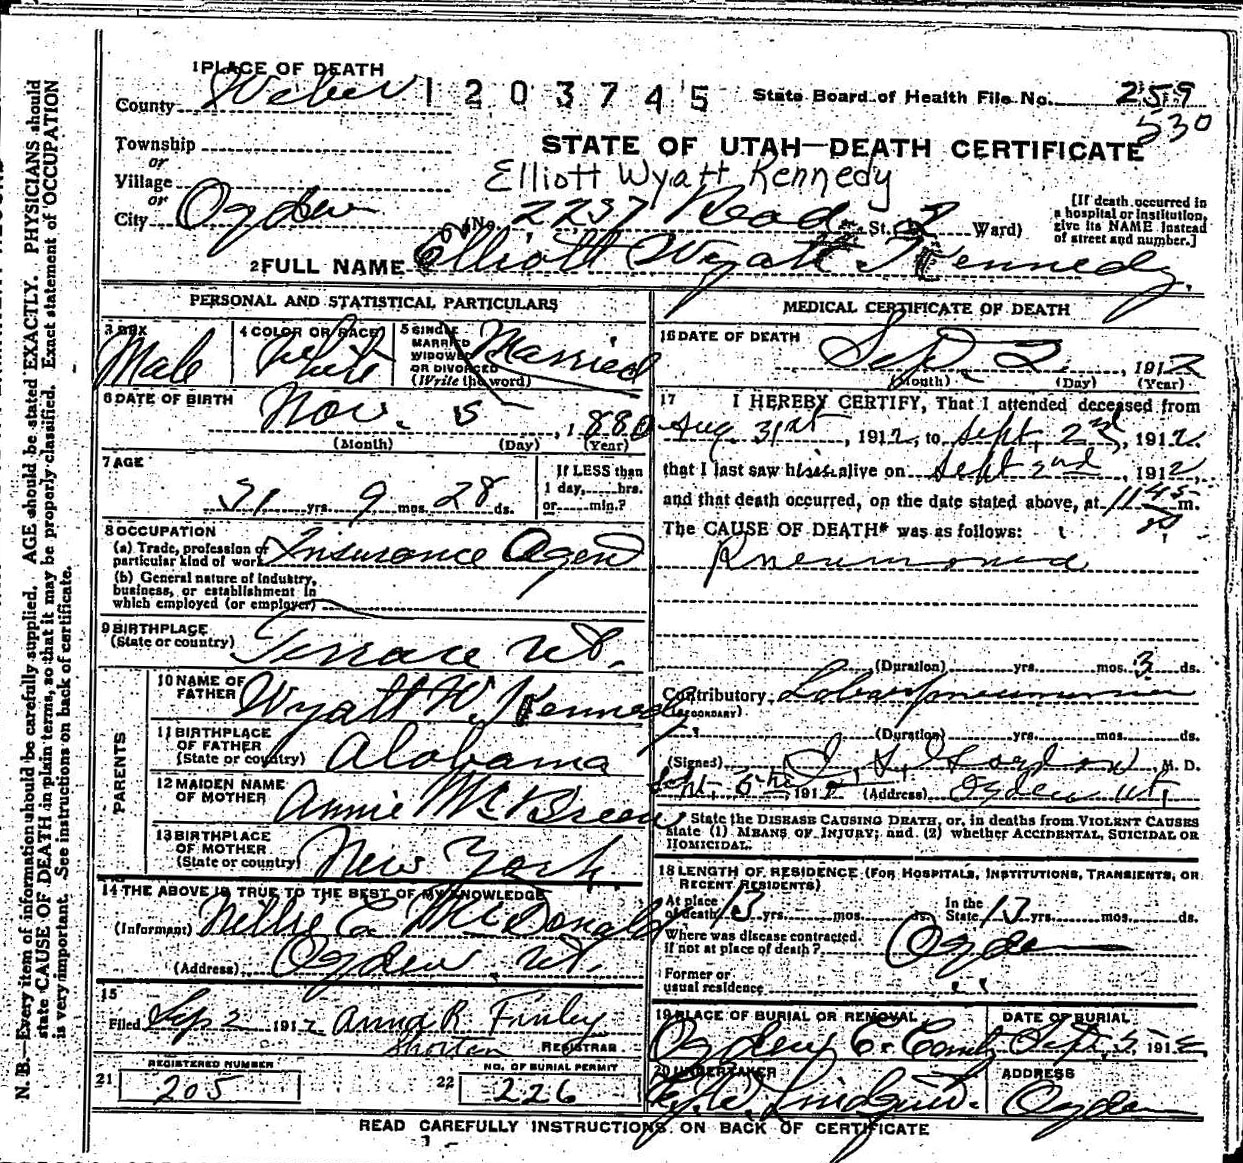 1 PLACE OF DEATH
County Weber 1203745 State Board of Health File No. 259
530
Township
or
STATE OF UTAH—DEATH CERTIFICATE
Village
Elliott Wyatt Kennedy
or
City Ogden (No. 2237 Read St. Ward)
[If death occurred in a hospital or institution, give its NAME instead of street and number.]
2 FULL NAME Elliott Wyatt Kennedy.
PERSONAL AND STATISTICAL PARTICULARS
3 SEX Male
4 COLOR OR RACE White
5 SINGLE MARRIED WIDOWED OR DIVORCED (Write the word) Married
6 DATE OF BIRTH
Nov. 5, 1880
(Month) (Day) (Year)
7 AGE
31 yrs. 9 mos. 28 ds.
If LESS than
1 day, hrs.
or min.?
8 OCCUPATION
(a) Trade, profession or
particular kind of work Insurance Agent
(b) General nature of industry,
business, or establishment in
which employed (or employer)
9 BIRTHPLACE
(State or country) Terrace Ut.
PARENTS
10 NAME OF
FATHER Wyatt W. Kennedy
11 BIRTHPLACE
OF FATHER
(State or country) Alabama
12 MAIDEN NAME
OF MOTHER Annie McBreen
13 BIRTHPLACE
OF MOTHER
(State or country) New York.
14 THE ABOVE IS TRUE TO THE BEST OF MY KNOWLEDGE
(Informant) Nellie E. McDonald
(Address) Ogden Ut.
15
Filed Sep 2 1912 Anna R Finley
REGISTRAR
REGISTERED NUMBER
21 205
NO. OF BURIAL PERMIT
22 226
MEDICAL CERTIFICATE OF DEATH
16 DATE OF DEATH
Sept. 2, 1912
(Month) (Day) (Year)
17 I HEREBY CERTIFY, That I attended deceased from
Aug. 31st, 1912, to Sept. 2nd, 1912.
that I last saw him alive on Sept 2nd, 1912,
and that death occurred, on the date stated above, at 11 45 m.
The CAUSE OF DEATH* was as follows:
Pneumonia
(Duration) yrs. mos. 3 ds.
Contributory Lobar pneumonia
(SECONDARY)
(Duration) yrs. mos. ds.
(Signed) Gordon, M. D.
Sept. 1912 (Address) Ogden Ut.
State the DISEASE CAUSING DEATH, or, in deaths from VIOLENT CAUSES
state (1) MEANS OF INJURY; and (2) whether ACCIDENTAL, SUICIDAL OR
HOMICIDAL.
18 LENGTH OF RESIDENCE (FOR HOSPITALS, INSTITUTIONS, TRANSIENTS, OR
RECENT RESIDENTS)
At place
of death 13 yrs. mos. ds.
In the
State yrs. mos. ds.
Where was disease contracted.
if not at place of death? Ogden
Former or
usual residence
19 PLACE OF BURIAL OR REMOVAL
Ogden
DATE OF BURIAL
Sept. 5 1912
20 UNDERTAKER
Lindquist.
ADDRESS
Ogden
READ CAREFULLY INSTRUCTIONS ON BACK OF CERTIFICATE
N. B.—Every item of information should be carefully supplied. AGE should be stated EXACTLY. PHYSICIANS should
state CAUSE OF DEATH in plain terms, so that it may be properly classified. Exact statement of OCCUPATION
is very important. See instructions on back of certificate.